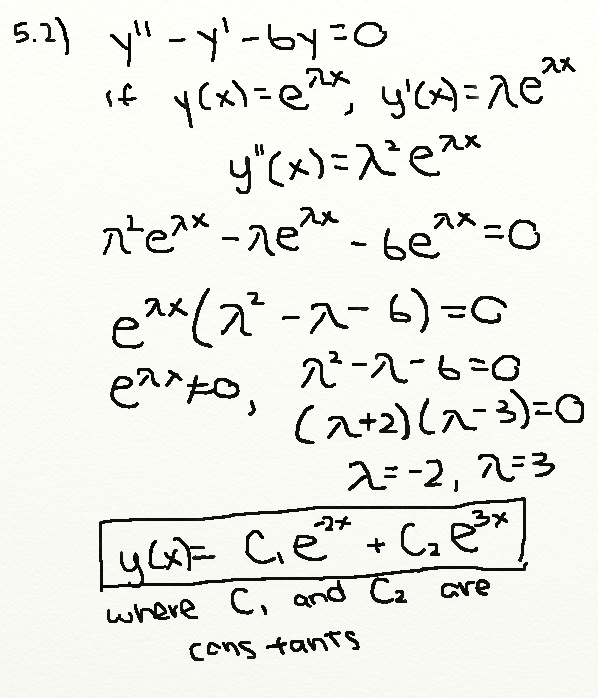 5.2) y'' - y' - 6y = 0
if y(x) = e^{λx}, y'(x) = λe^{λx}
y''(x) = λ² e^{λx}
λ² e^{λx} - λe^{λx} - 6e^{λx} = 0
e^{λx} (λ² - λ - 6) = 0
e^{λx} ≠ 0, λ² - λ - 6 = 0
(λ+2)(λ-3) = 0
λ = -2, λ = 3
y(x) = C₁e^{-2x} + C₂e^{3x}
where C₁ and C₂ are
constants